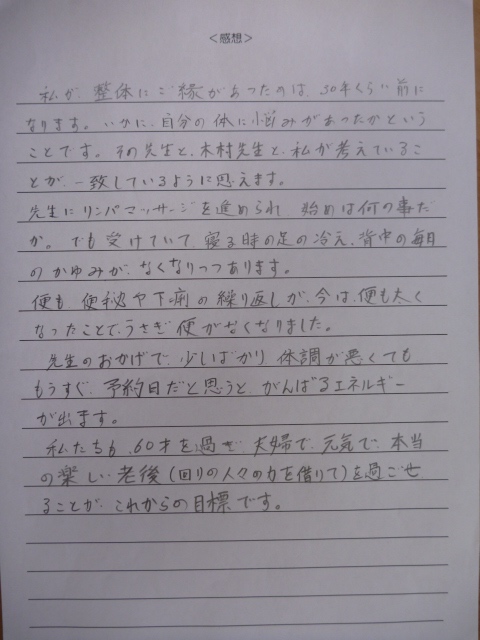 ＜感想＞
私が、整体にご縁があったのは、30年くらい前に
なります。いかに、自分の体に悩みがあったかという
ことです。その先生と、木村先生と、私が考えているこ
とが、一致しているように思えます。
先生にリンパマッサージを進められ、始めは何の事だ
か。でも受けていて、寝る時の足の冷え、背中の毎日
のかゆみが、なくなりつつあります。
便も、便秘や下痢の繰り返しが、今は、便も太く
なったことで、うさぎ便がなくなりました。
先生のおかげで、少しばかり体調が悪くても
もうすぐ、予約日だと思うと、がんばるエネルギー
が出ます。
私たちも、60才を過ぎ、夫婦で、元気で、本当
の楽しい老後(回りの人々の力を借りて)を過ごせ
ることが、これからの目標です。